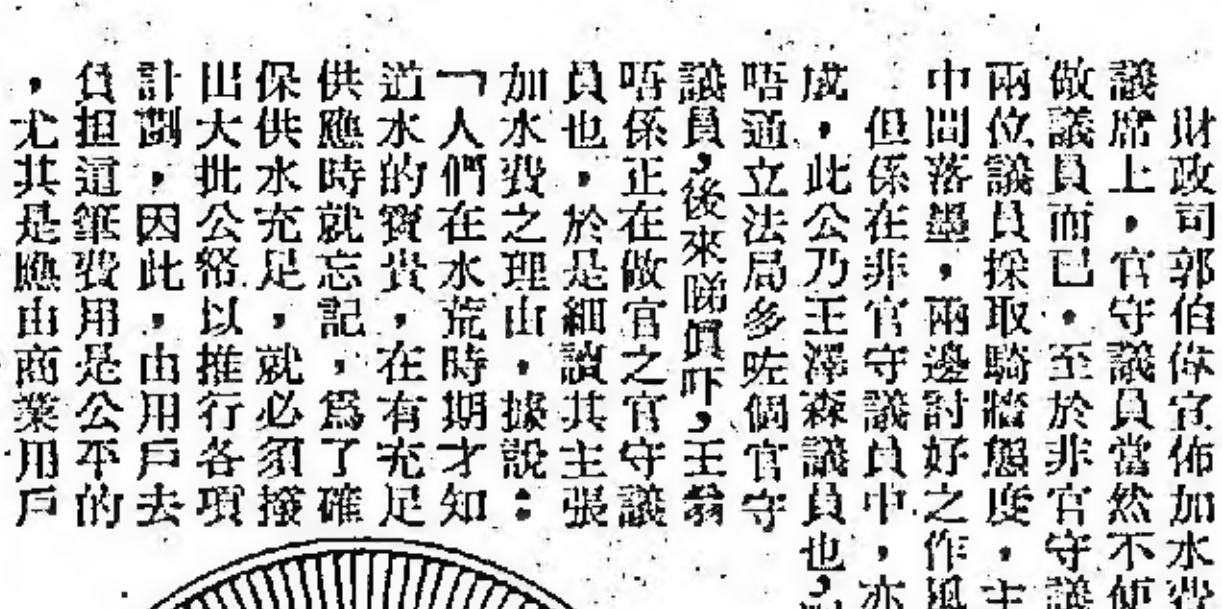 財政司郭伯偉宣佈加水費
議席上，官守議員當然不便
做議員而已。至於非官守議
兩位議員採取騎牆態度，主
中間落墨，兩邊討好之作風
但係在非官守議員中，亦
成，此公乃王澤森議員也，
唔通立法局多咗個官守
議員，後來睇真吓，王翁
唔係正在做官之官守議
員也，於是細讀其主張
加水費之理由，據說：
「人們在水荒時期才知
道水的寶貴，在有充足
供應時就忘記，為了確
保供水充足，就必須撥
出大批公帑以推行各項
計劃，因此，由用戶去
負担這筆費用是公平的
，尤其是應由商業用戶